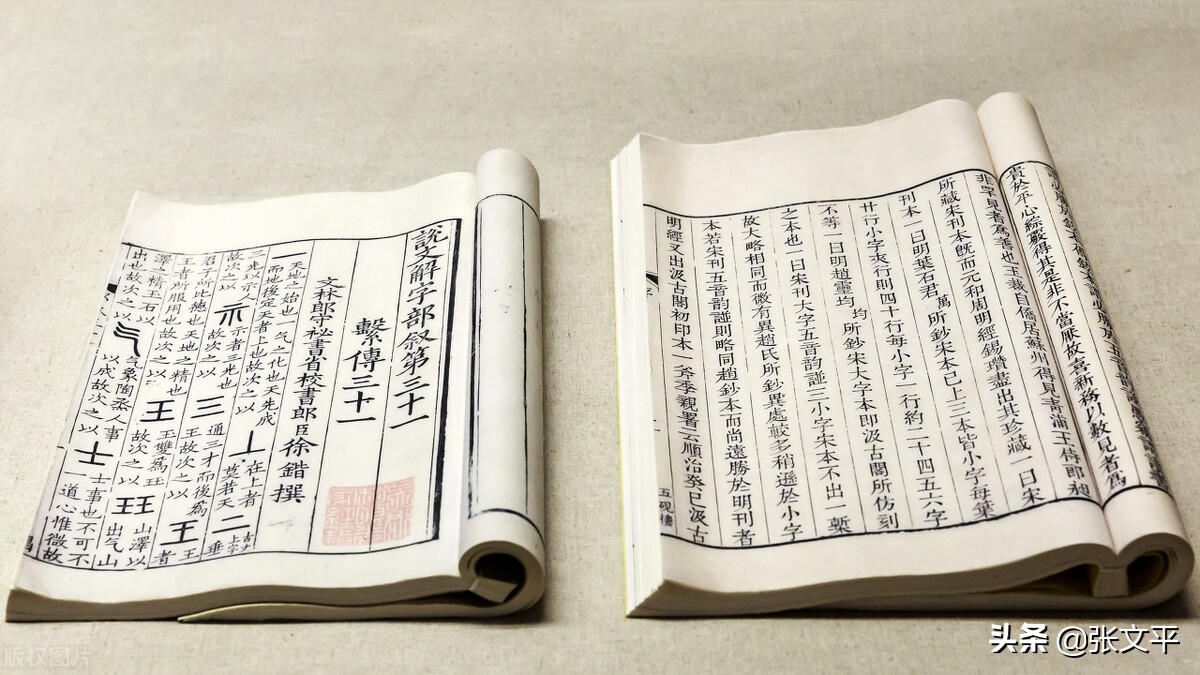 說文解字部叙第三十一
繫傳三十一
文林郎守秘書省校書郎臣徐鍇撰
一 天地之始也一气之化也天先成而地後定天者上也故次之以 丄 在上者莫若天 二 古文上字 垂
三光以示人故次之以 示 示者三光也故次之以 三 通三才而後爲王故次之以 王 王者
君子所比德也天地之精也王者所服用也故次之以 王 王雙爲玨故次之以 玨 山澤以出气山
澤之精玉石以出也故次之以 气 气象陶烝人事以成故次之以 士 士事也不可不一道心惟微故
貴於平心綜覈得其是非不當厭故喜新務以數見者爲
非罕見者爲善也玉裁自僑居蘇州得見青浦王侍郎昶
所藏宋刊本旣而元和周明經錫瓚盡出其珍藏一曰宋
刊本一曰明葉石君萬所鈔宋本已上三本皆小字每葉
廿行小字夾行則四十行每小字一行約二十四五六字
不等一曰明趙靈均均所鈔宋大字本卽汲古閣所仿刻
之本也一曰宋刊大字五音韵譜三小字宋本不出一槧
故大略相同而微有異趙氏所鈔異處較多稍遜於小字
本若宋刊五音韵譜則略同趙鈔本而尚遠勝於明刊者
明經又出汲古閣初印本一斧季親署云順治癸巳汲古
五硯樓
头条 @张文平
版权图片